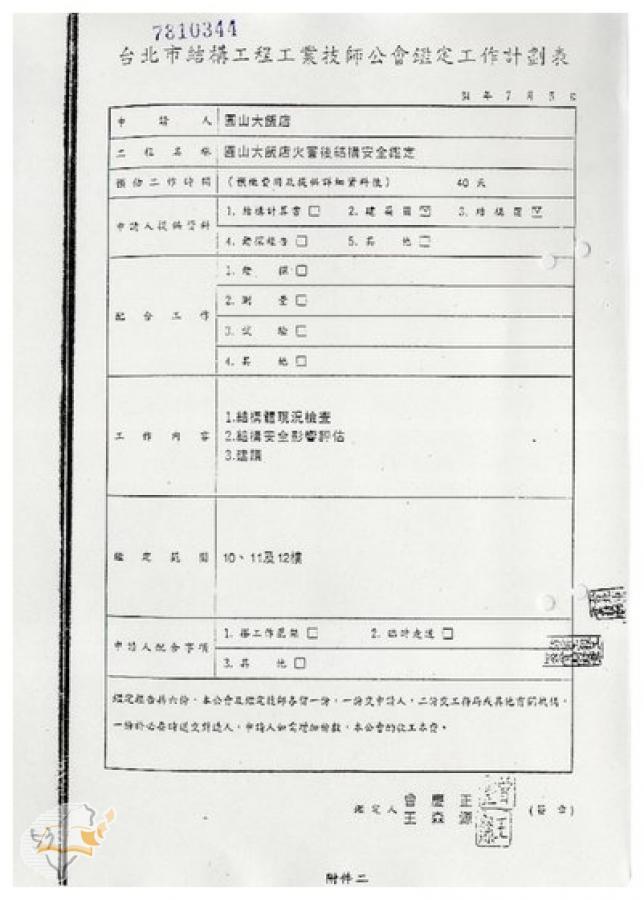 7810344
台北市結構工程工業技師公會鑑定工作計劃表
84 年 7 月 5 日
申請人 圓山大飯店
工程名稱 圓山大飯店火警後結構安全鑑定
預估工作時間 (預繳費用及提供詳細資料後) 40 天
申請人提供資料 1. 結構計算書 □ 2. 建築圖 ☑ 3. 結構圖 ☑
4. 鑽探報告 □ 5. 其他 □
配合工作 1. 鑽探 □
2. 測量 □
3. 試驗 □
4. 其他 □
工作內容 1.結構體現況檢查
2.結構安全影響評估
3.建議
鑑定範圍 10、11及12樓
申請人配合事項 1. 搭工作鷹架 □ 2. 臨時走道 □
3. 其他 □
鑑定報告共六份,本公會及鑑定技師各留一份,一份交申請人,二份交工務局或其他有關機構,
一份於必要時送交對造人,申請人如需增加份數,本公會酌收工本費。
鑑定人 曾慶正 (簽章)
王森源
附件二